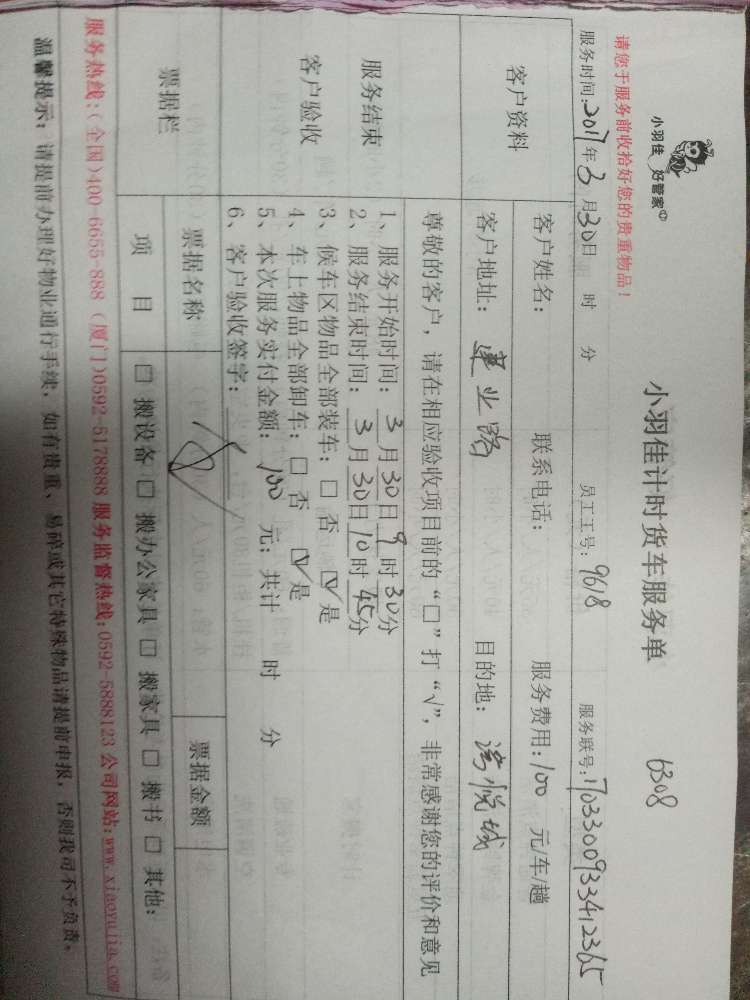 小羽佳 好管家
小羽佳计时货车服务单
6308
请您于服务前收拾好您的贵重物品！
服务时间:2017年3月30日 时 分 员工工号:9618 服务联号:1703300933412365
客户资料
客户姓名： 联系电话： 服务费用:100 元/车/趟
客户地址：建业路 目的地：湾悦城
尊敬的客户，请在相应验收项目前的“□”打“√”，非常感谢您的评价和意见
服务结束
客户验收
1、服务开始时间：3月30日9时30分
2、服务结束时间：3月30日10时45分
3、候车区物品全部装车：□ 否 ☑ 是
4、车上物品全部卸车：□ 否 ☑ 是
5、本次服务实付金额：100 元；共计 时 分
6、客户验收签字：
票据栏
票据名称 票据金额
项 目 □ 搬设备 □ 搬办公家具 □ 搬家具 □ 搬书 □ 其他：
服务热线：(全国)400-6655-888 (厦门)0592-5178888 服务监督热线：0592-5888123 公司网站：www.xiaoyujia.com
温馨提示：请提前办理好物业通行手续，如有贵重、易碎或其它特殊物品请提前申报，否则我司不予负责。